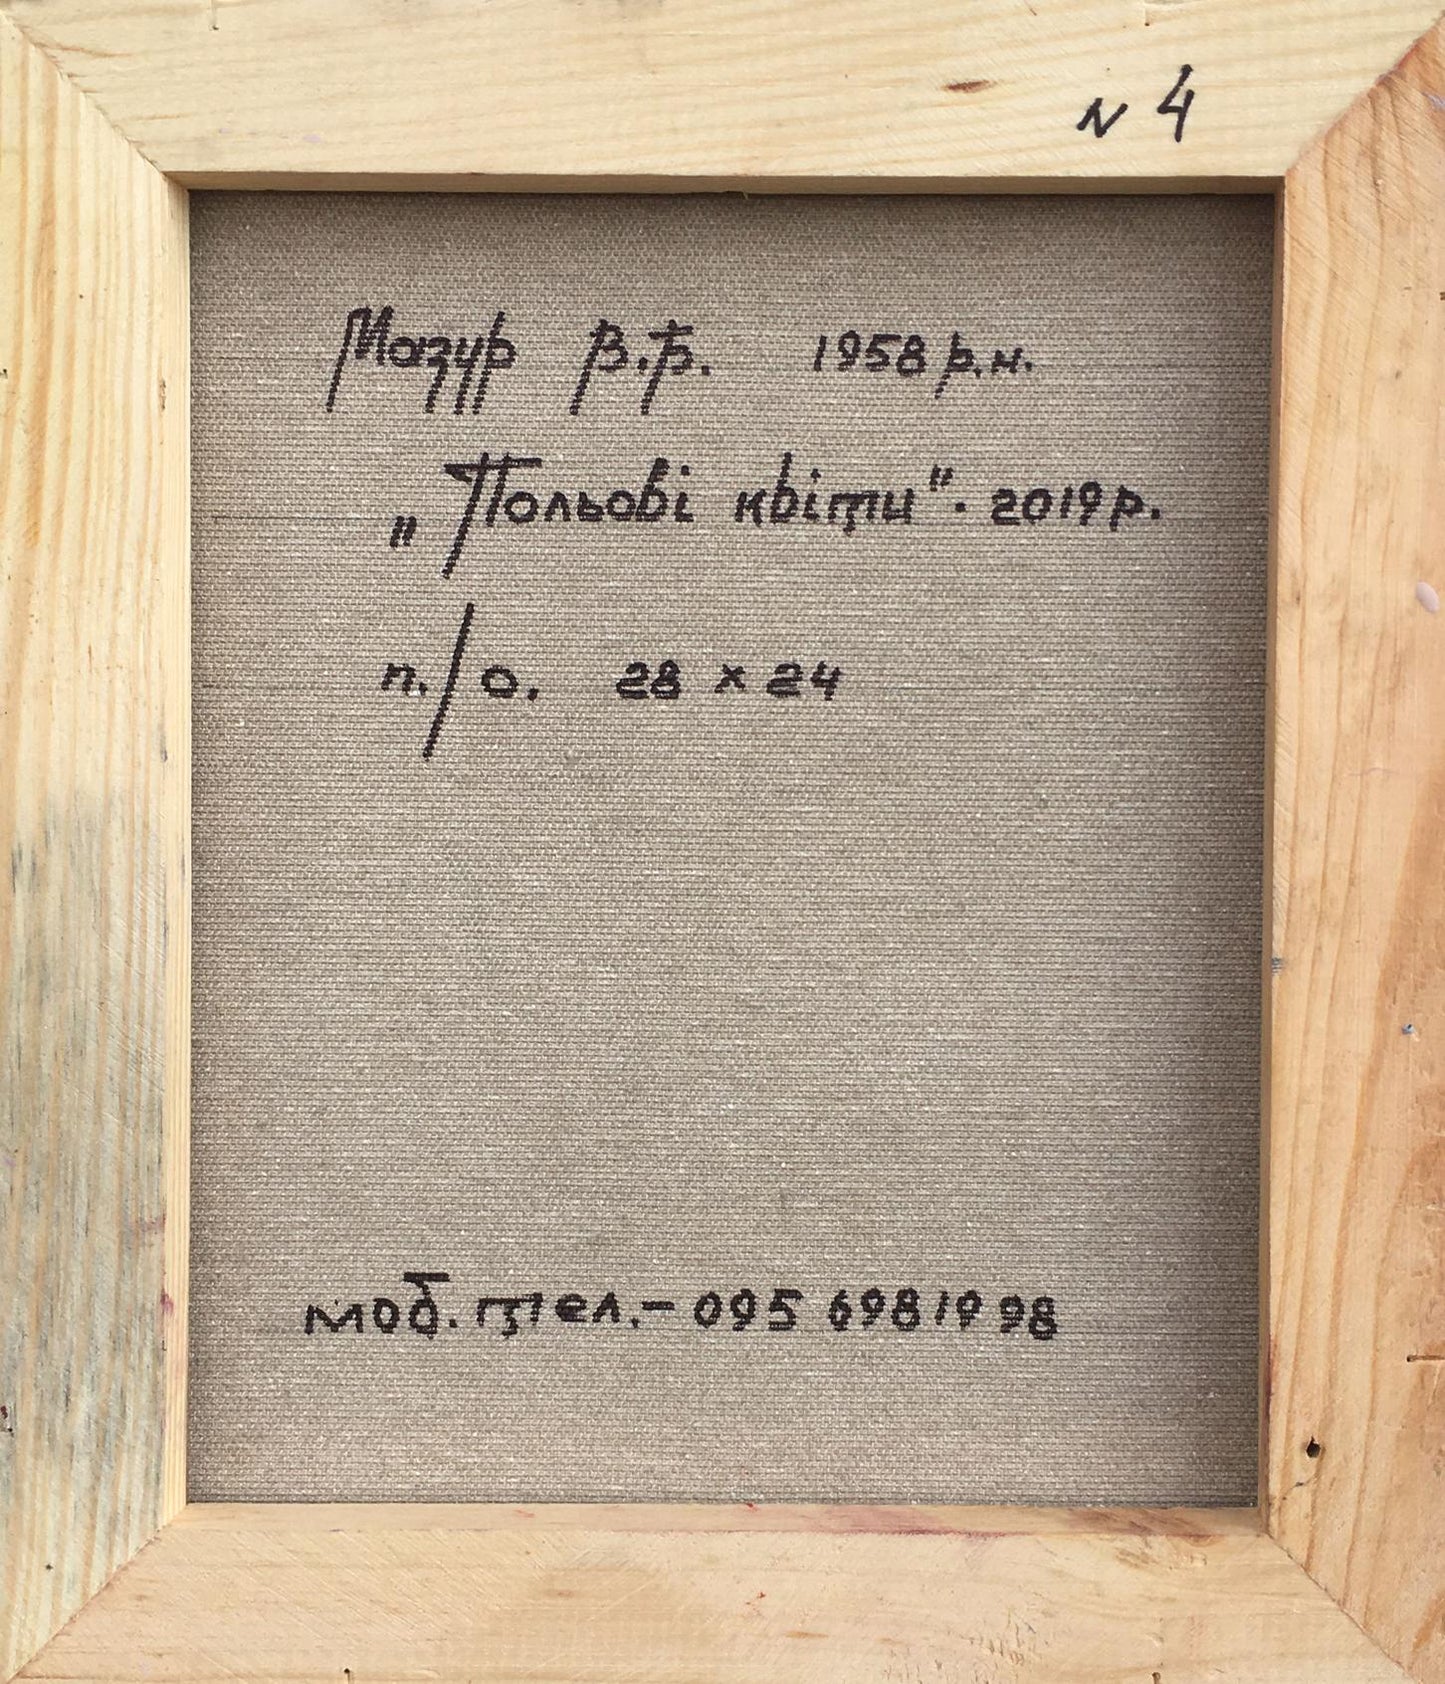 N 4
Мазур В.Б. 1958 р.н.
„Польові квіти". 2019 р.
п./о. 28 × 24
моб. тел. – 095 698 19 98